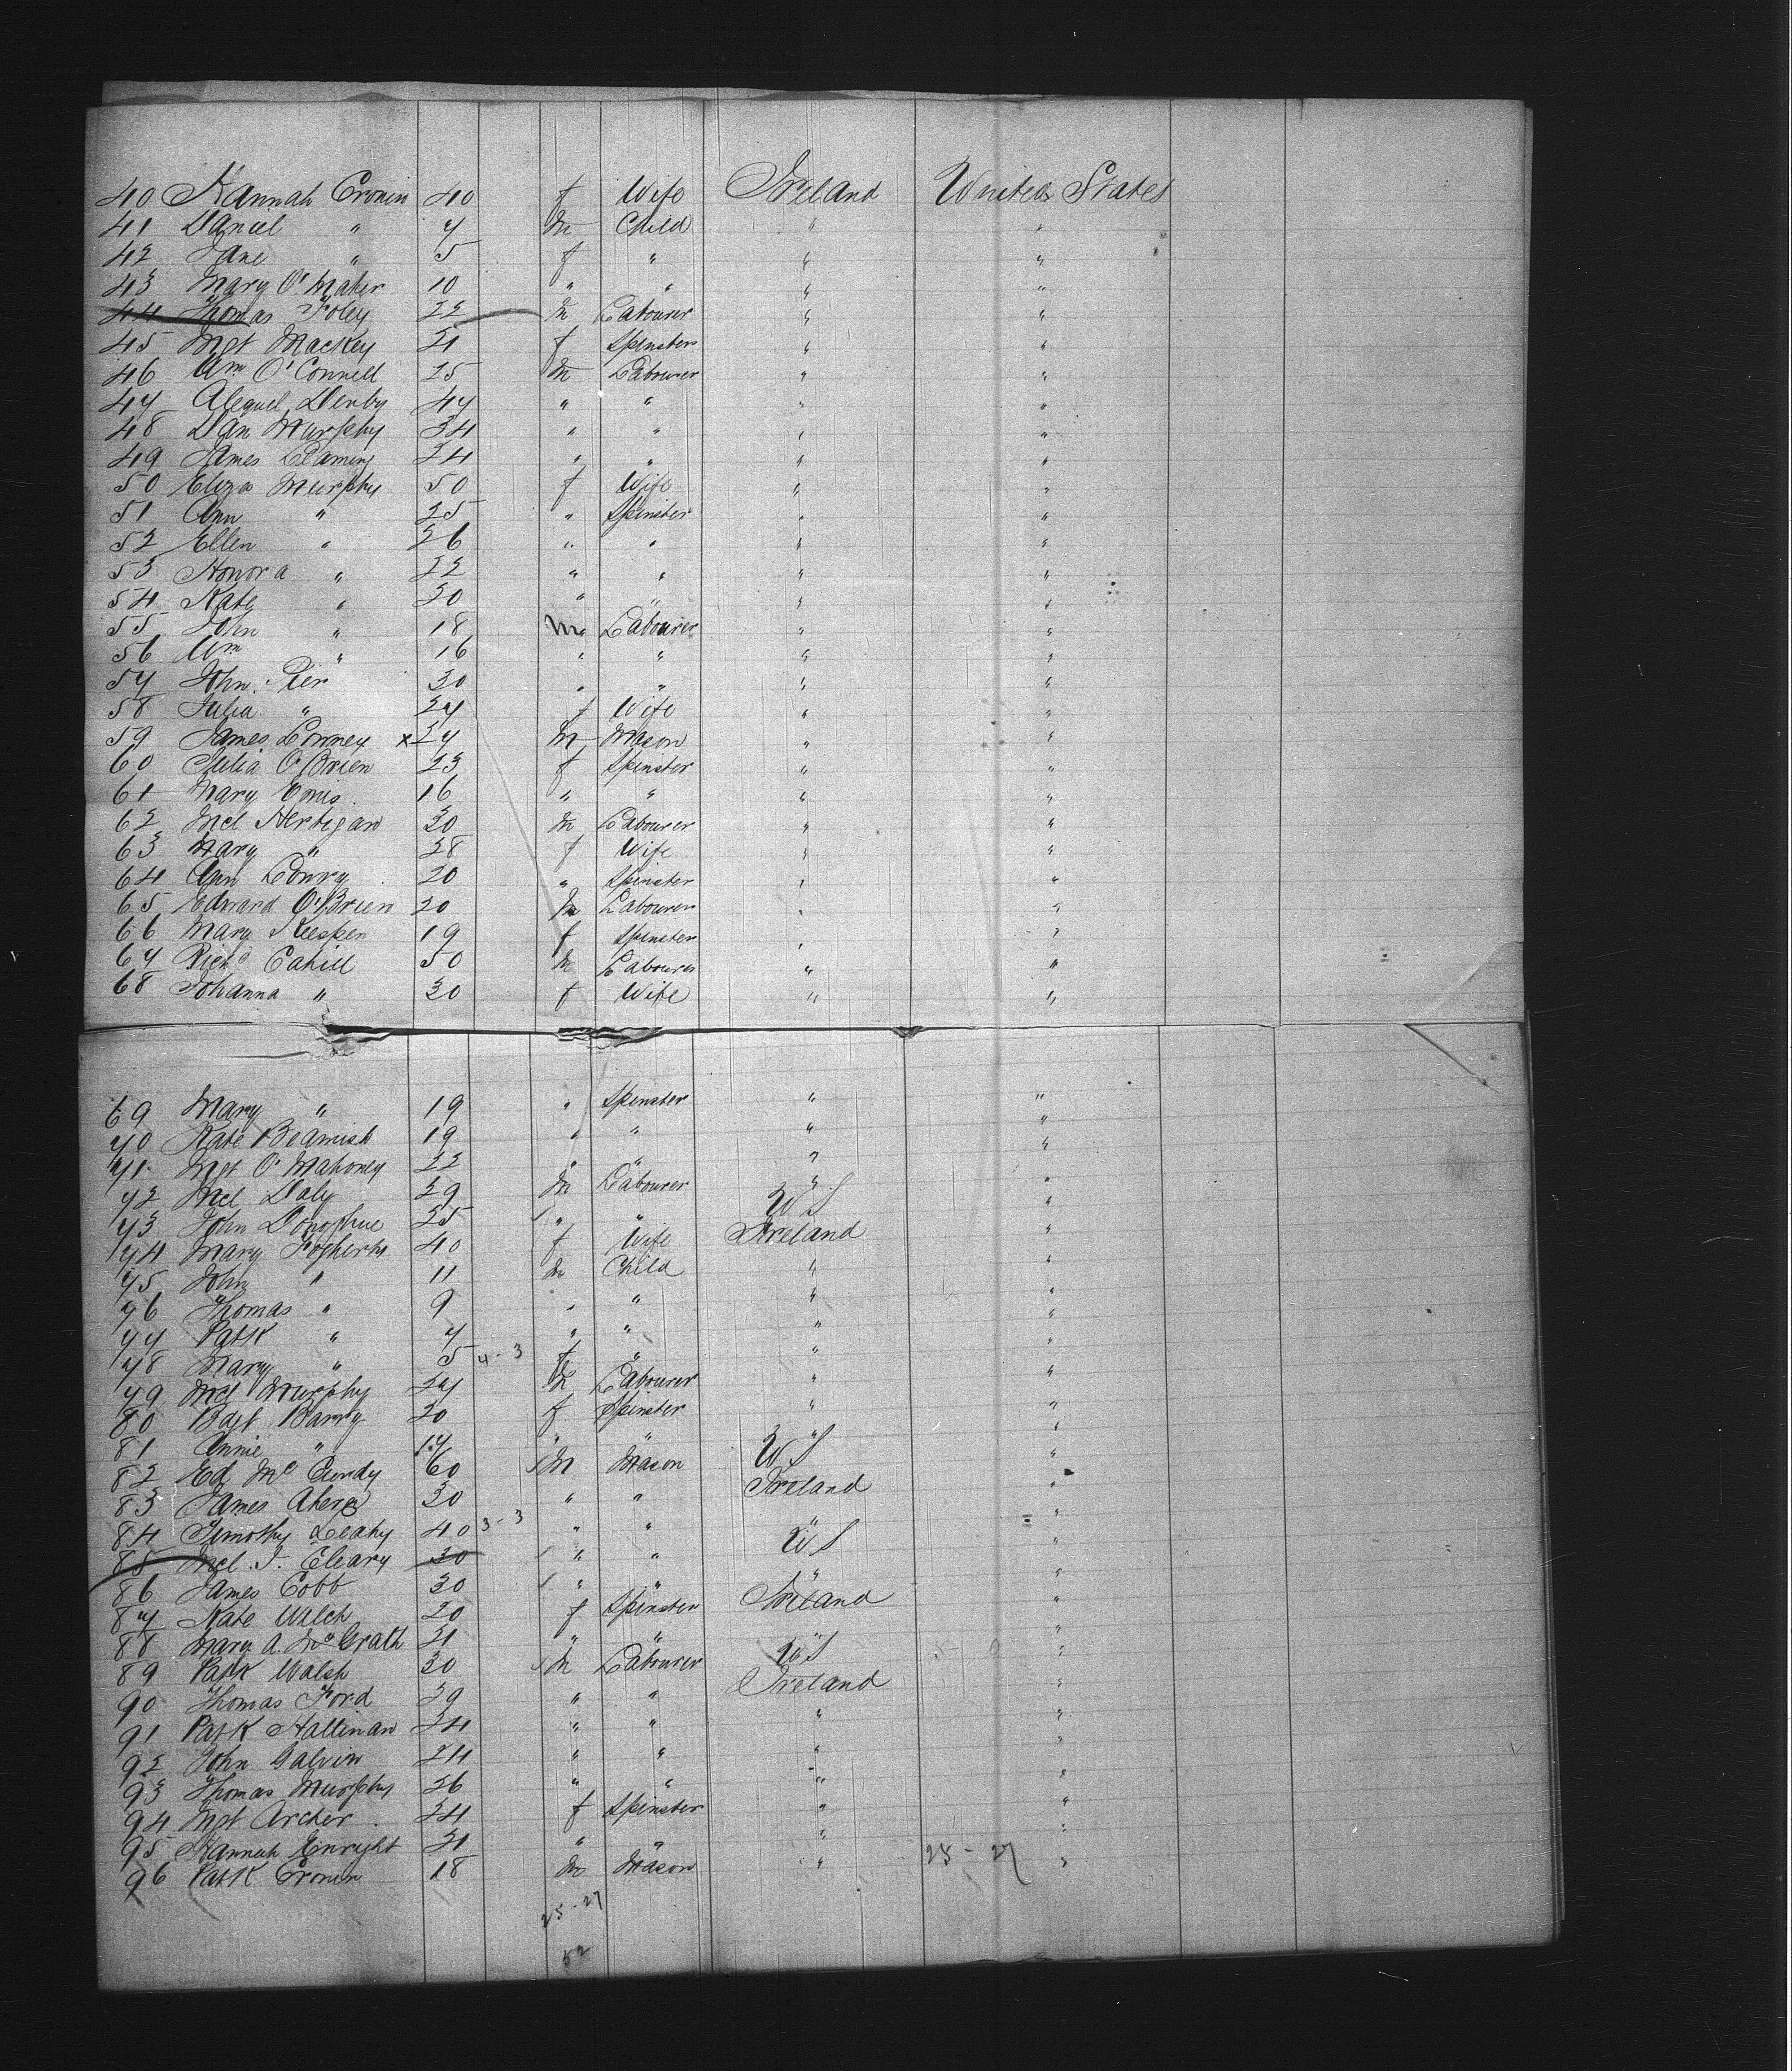 40 Hannah Cronin 40 f Wife Ireland United States
41 Daniel " 7 m Child " "
42 Jane " 5 f " " "
43 Mary O'Maher 10 " " " "
44 Thomas Foley 22 m Labourer " "
45 Mgt Mackey 21 f Spinster " "
46 Wm O'Connell 25 m Labourer " "
47 Denby 47 " " " "
48 Dan Murphy 34 " " " "
49 James 24 " " " "
50 Eliza Murphy 50 f Wife " "
51 Ann " 25 " Spinster " "
52 Ellen " 26 " " " "
53 Honora " 22 " " " "
54 Kate " 20 " " " "
55 John " 18 m Labourer " "
56 Wm " 16 " " " "
57 John Pier 30 " " " "
58 Julia " 27 f Wife " "
59 James Lowney x 27 m Mason " "
60 Julia O'Brien 23 f Spinster " "
61 Mary 16 " " " "
62 Mcl Hertigan 30 m Labourer " "
63 Mary " 28 f Wife " "
64 Ann Lowry 20 " Spinster " "
65 Edward O'Brien 20 m Labourer " "
66 Mary 19 f Spinster " "
67 Richd Cahill 50 m Labourer " "
68 Johanna " 30 f Wife " "
69 Mary " 19 " Spinster " "
70 Kate Beamish 19 " " " "
71 Mgt O'Mahoney 22 " " " "
72 Mcl Daly 29 m Labourer " "
73 John Donoghue 25 " " US "
74 Mary 40 f Wife Ireland "
75 John " 11 m Child " "
76 Thomas " 9 " " " "
77 Patk " 7 " " " "
78 Mary " 5 4-3 f " " "
79 Mcl Murphy 27 m Labourer " "
80 Bdgt Barry 20 f Spinster " "
81 Annie " 17 " " " "
82 Ed McCurdy 60 m Mason US "
83 James Ahern 30 " " Ireland "
84 Timothy Leahy 40 3-3 " " " "
85 Mcl J. Cleary 30 " " US "
86 James Cobb 30 " " " "
87 Kate Welch 20 f Spinster Ireland "
88 Mary A. McGrath 21 " " " "
89 Patk Walsh 30 m Labourer US "
90 Thomas Ford 29 " " Ireland "
91 Patk Hallinan 24 " " " "
92 John Galvin 24 " " " "
93 Thomas Murphy 26 " " " "
94 Mgt Archer 24 f Spinster " "
95 Hannah Enright 21 " " " "
96 Patk Cronin 18 m Mason " 25-27 "
25-27
52